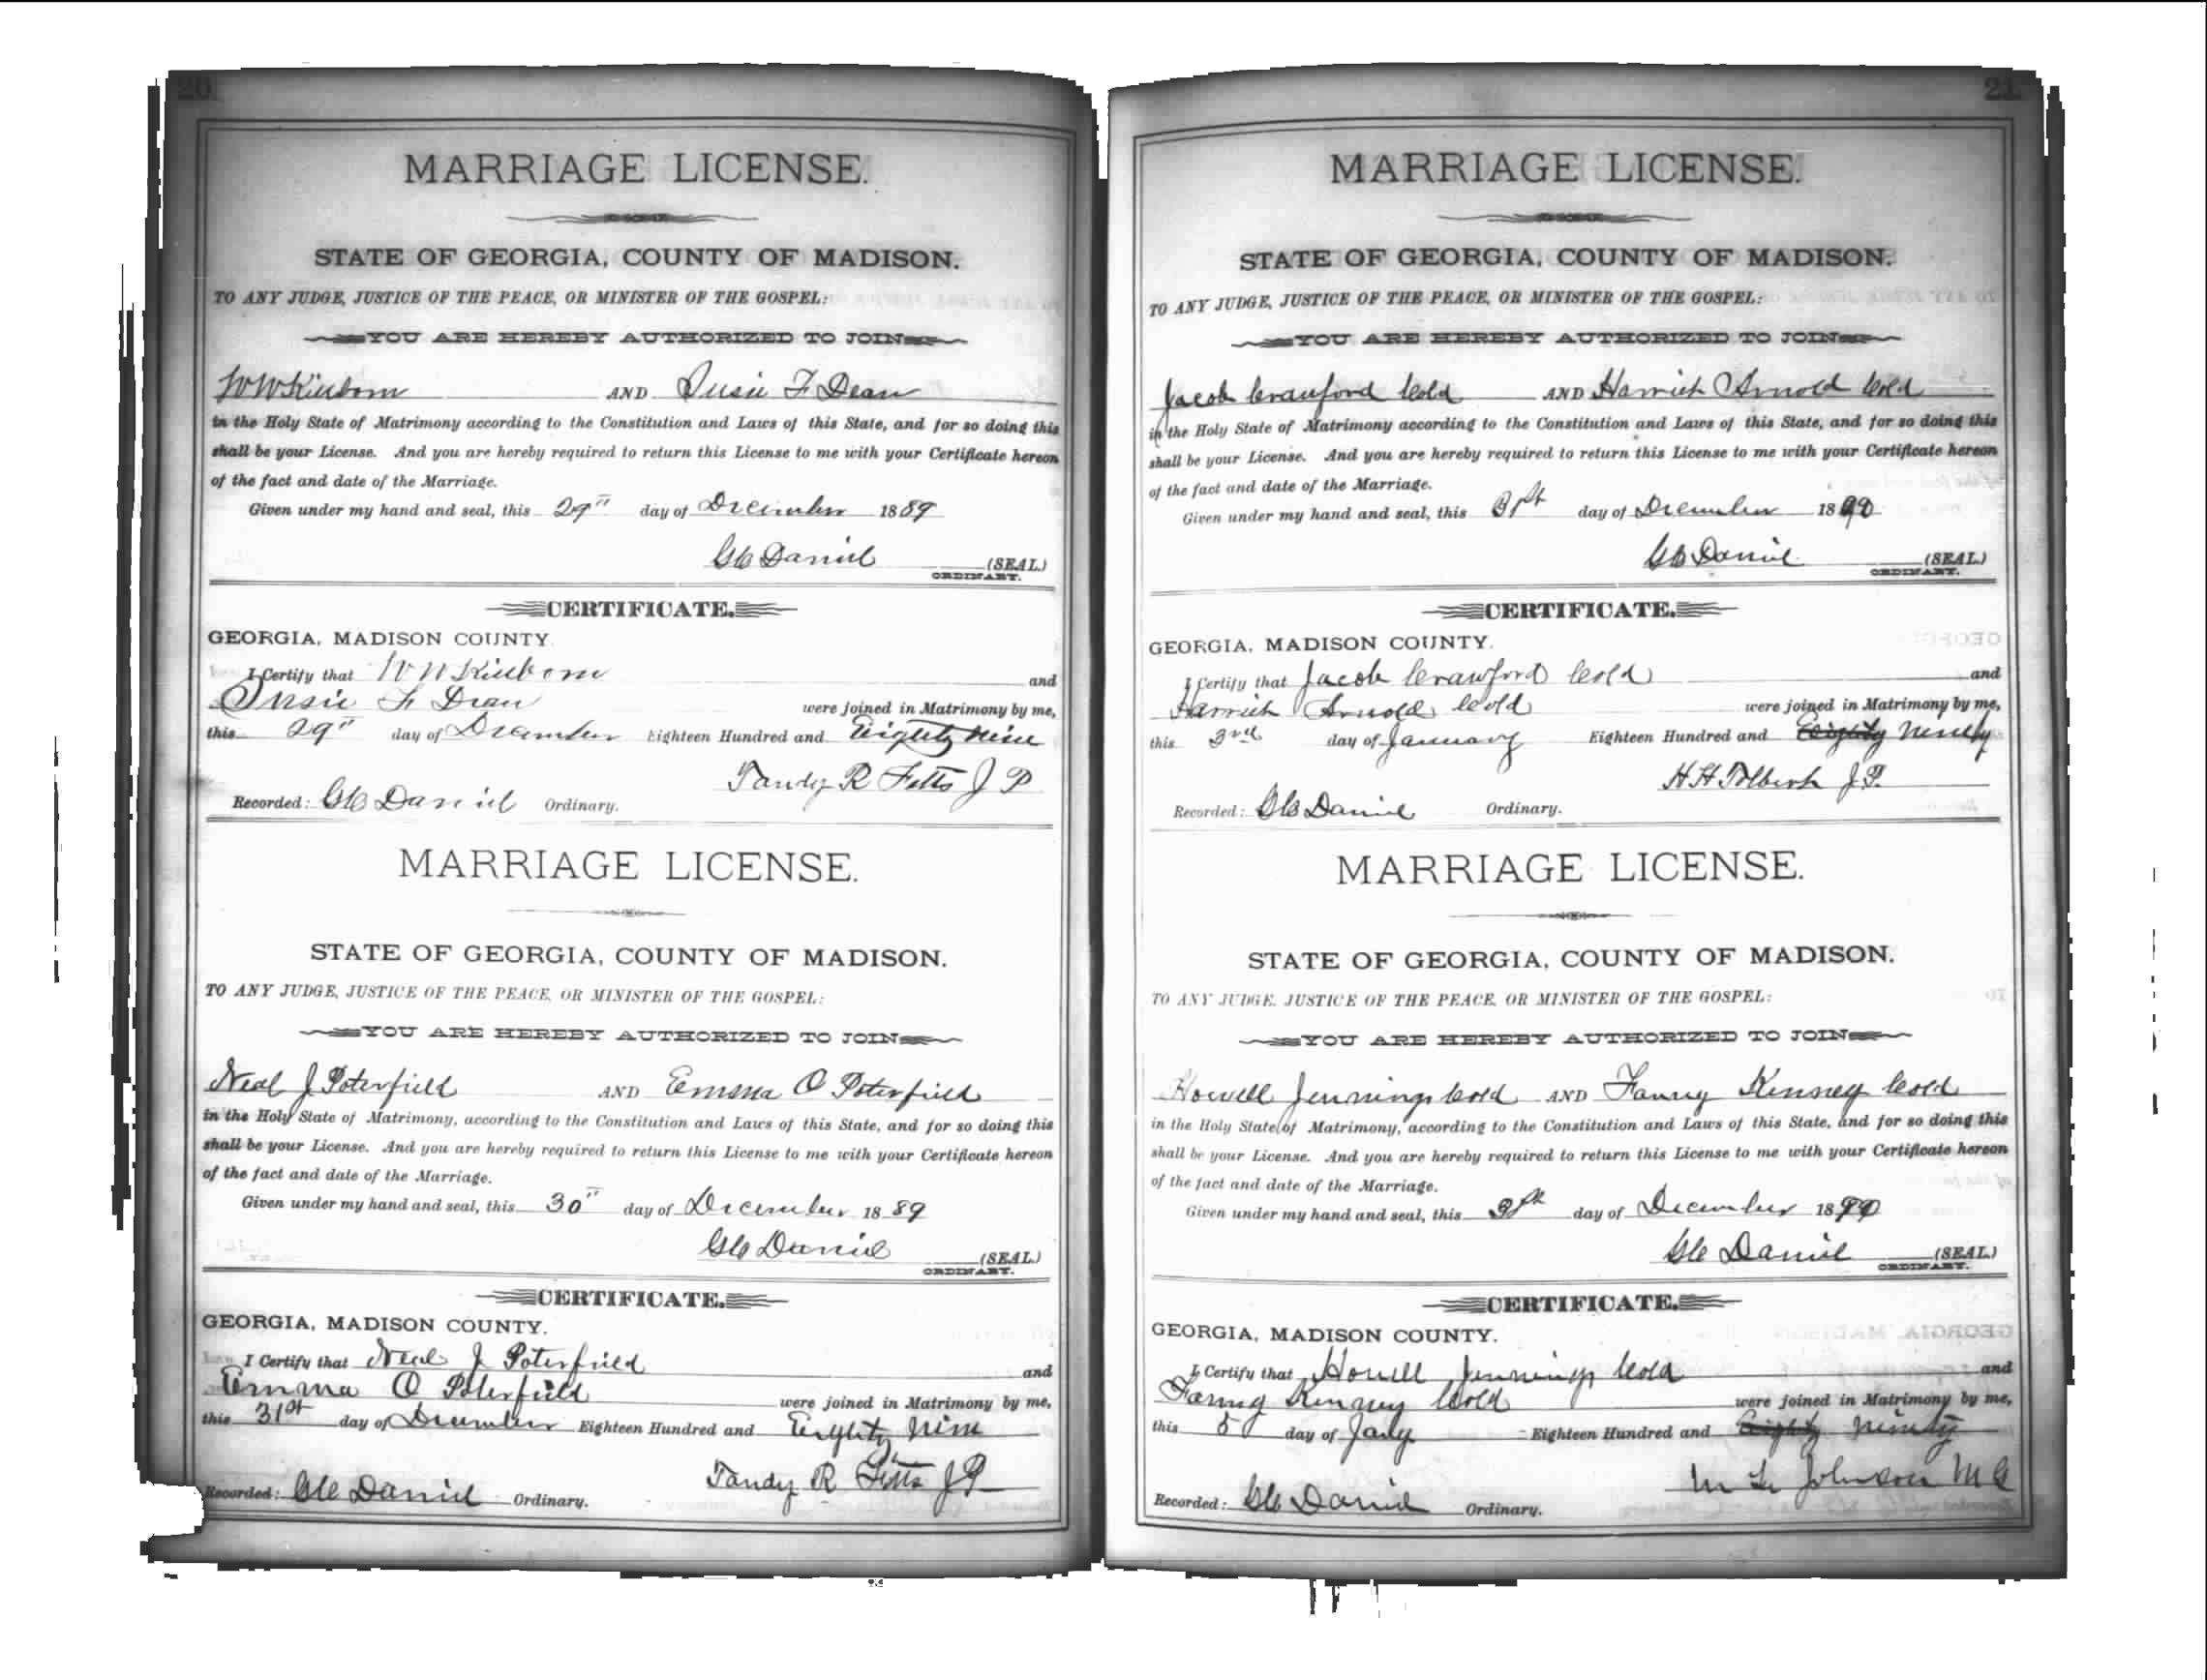 20
MARRIAGE LICENSE.
STATE OF GEORGIA, COUNTY OF MADISON.
TO ANY JUDGE, JUSTICE OF THE PEACE, OR MINISTER OF THE GOSPEL:
YOU ARE HEREBY AUTHORIZED TO JOIN
AND Susie F Dean
in the Holy State of Matrimony according to the Constitution and Laws of this State, and for so doing this
shall be your License. And you are hereby required to return this License to me with your Certificate hereon
of the fact and date of the Marriage.
Given under my hand and seal, this 29" day of December 1889
Daniel (SEAL)
ORDINARY.
CERTIFICATE.
GEORGIA, MADISON COUNTY.
I Certify that and
Susie F Dean were joined in Matrimony by me,
this 29" day of December Eighteen Hundred and Eighty Nine
Tandy R Fitts J P
Recorded: Daniel Ordinary.
MARRIAGE LICENSE.
STATE OF GEORGIA, COUNTY OF MADISON.
TO ANY JUDGE, JUSTICE OF THE PEACE, OR MINISTER OF THE GOSPEL:
YOU ARE HEREBY AUTHORIZED TO JOIN
Neal J Poterfield AND Emma O Poterfield
in the Holy State of Matrimony, according to the Constitution and Laws of this State, and for so doing this
shall be your License. And you are hereby required to return this License to me with your Certificate hereon
of the fact and date of the Marriage.
Given under my hand and seal, this 30" day of December 1889
Daniel (SEAL)
ORDINARY.
CERTIFICATE.
GEORGIA, MADISON COUNTY.
I Certify that Neal J Poterfield and
Emma O Poterfield were joined in Matrimony by me,
this 31st day of December Eighteen Hundred and Eighty Nine
Tandy R Fitts J P
Recorded: Daniel Ordinary.
21
MARRIAGE LICENSE.
STATE OF GEORGIA, COUNTY OF MADISON.
TO ANY JUDGE, JUSTICE OF THE PEACE, OR MINISTER OF THE GOSPEL:
YOU ARE HEREBY AUTHORIZED TO JOIN
Jacob Crawford Cold AND Harriet Arnold Cold
in the Holy State of Matrimony according to the Constitution and Laws of this State, and for so doing this
shall be your License. And you are hereby required to return this License to me with your Certificate hereon
of the fact and date of the Marriage.
Given under my hand and seal, this 31st day of December 18
Daniel (SEAL)
ORDINARY.
CERTIFICATE.
GEORGIA, MADISON COUNTY.
I Certify that Jacob Crawford Cold and
Harriet Arnold Cold were joined in Matrimony by me,
this 3rd day of January Eighteen Hundred and Eighty Ninety
H H Tolbert J. P.
Recorded: Daniel Ordinary.
MARRIAGE LICENSE.
STATE OF GEORGIA, COUNTY OF MADISON.
TO ANY JUDGE, JUSTICE OF THE PEACE, OR MINISTER OF THE GOSPEL:
YOU ARE HEREBY AUTHORIZED TO JOIN
Howell Jennings Cold AND Fanny Kenney Cold
in the Holy State of Matrimony, according to the Constitution and Laws of this State, and for so doing this
shall be your License. And you are hereby required to return this License to me with your Certificate hereon
of the fact and date of the Marriage.
Given under my hand and seal, this day of December 18
Daniel (SEAL)
ORDINARY.
CERTIFICATE.
GEORGIA, MADISON COUNTY.
I Certify that Howell Jennings Cold and
Fanny Kenney Cold were joined in Matrimony by me,
this 5 day of Jany Eighteen Hundred and Eighty Ninety
M L Johnson M G
Recorded: Daniel Ordinary.